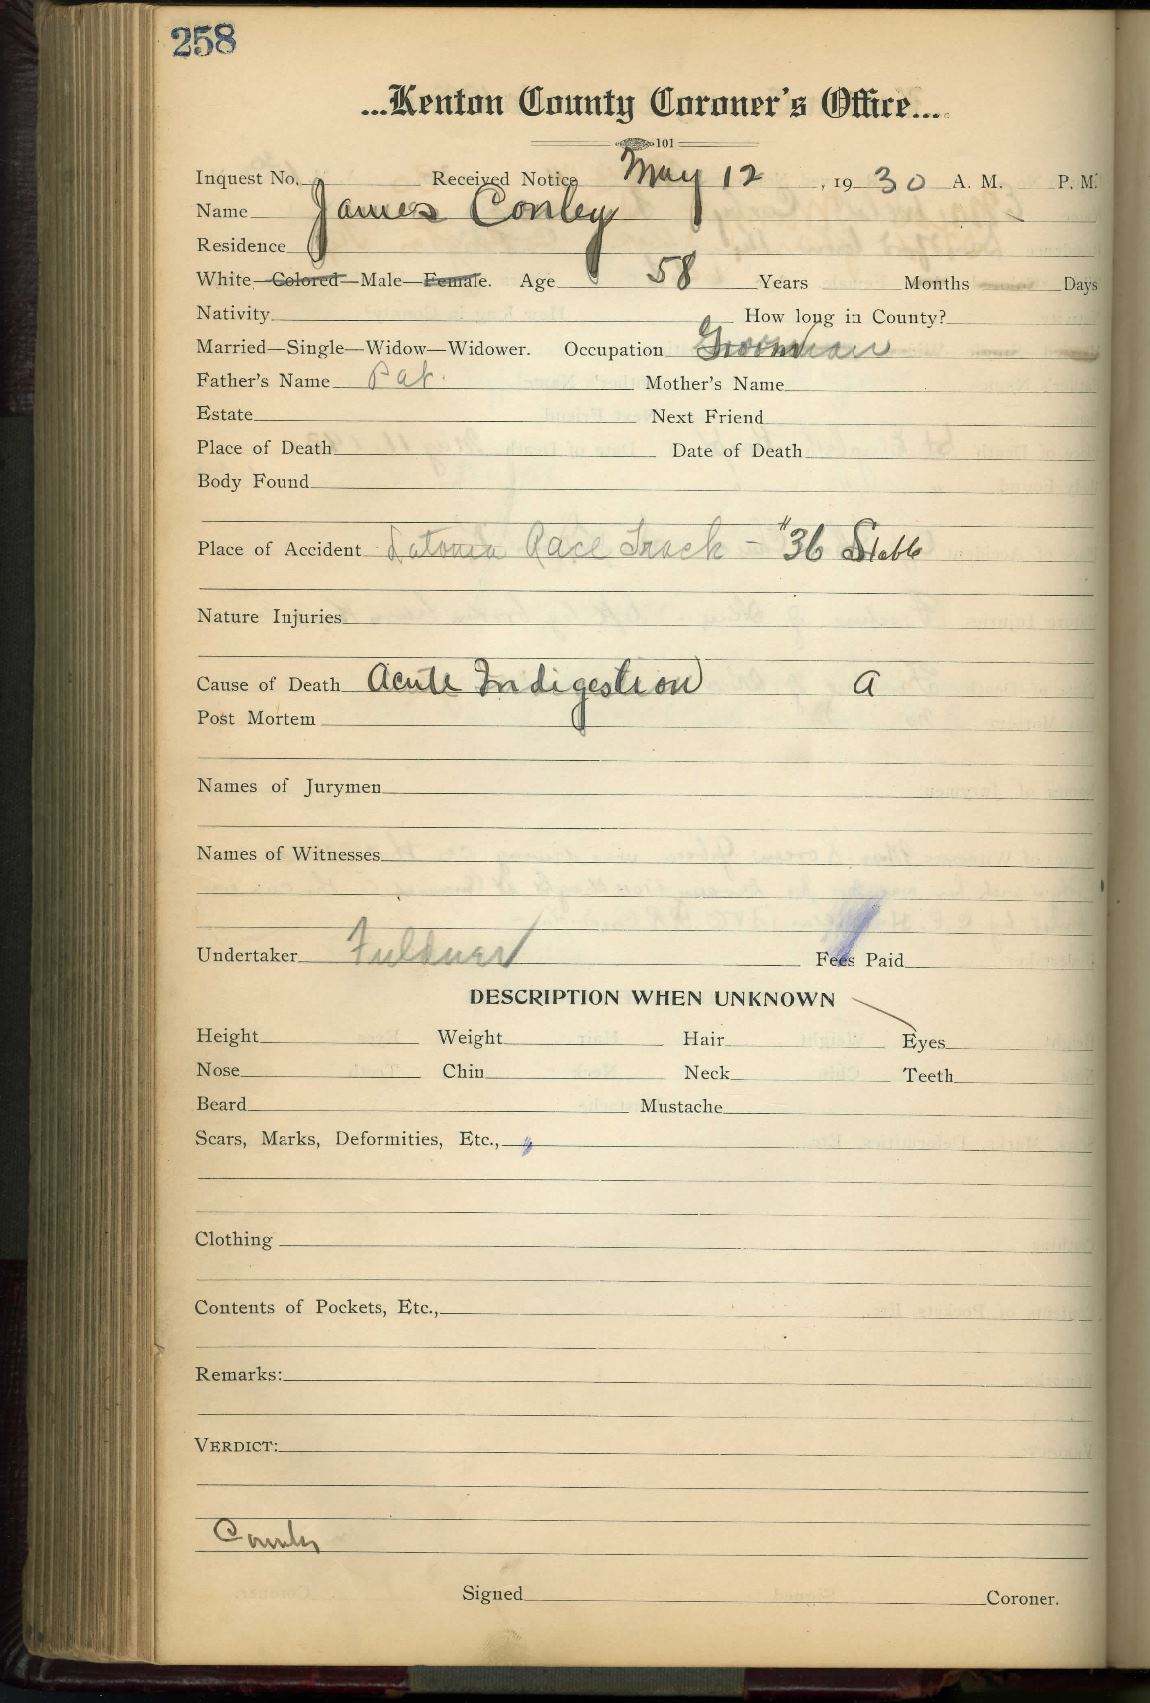 258
...Kenton County Coroner's Office...
101
Inquest No. Received Notice May 12, 1930 A. M. P. M.
Name James Conley
Residence
White—Colored—Male—Female. Age 58 Years Months Days
Nativity How long in County?
Married—Single—Widow—Widower. Occupation
Father's Name Pat. Mother's Name
Estate Next Friend
Place of Death Date of Death
Body Found
Place of Accident Latonia Race Track - #36 Stable
Nature Injuries
Cause of Death Acute Indigestion A
Post Mortem
Names of Jurymen
Names of Witnesses
Undertaker Fuldner Fees Paid
DESCRIPTION WHEN UNKNOWN
Height Weight Hair Eyes
Nose Chin Neck Teeth
Beard Mustache
Scars, Marks, Deformities, Etc.,
Clothing
Contents of Pockets, Etc.,
Remarks:
VERDICT:
Signed Coroner.